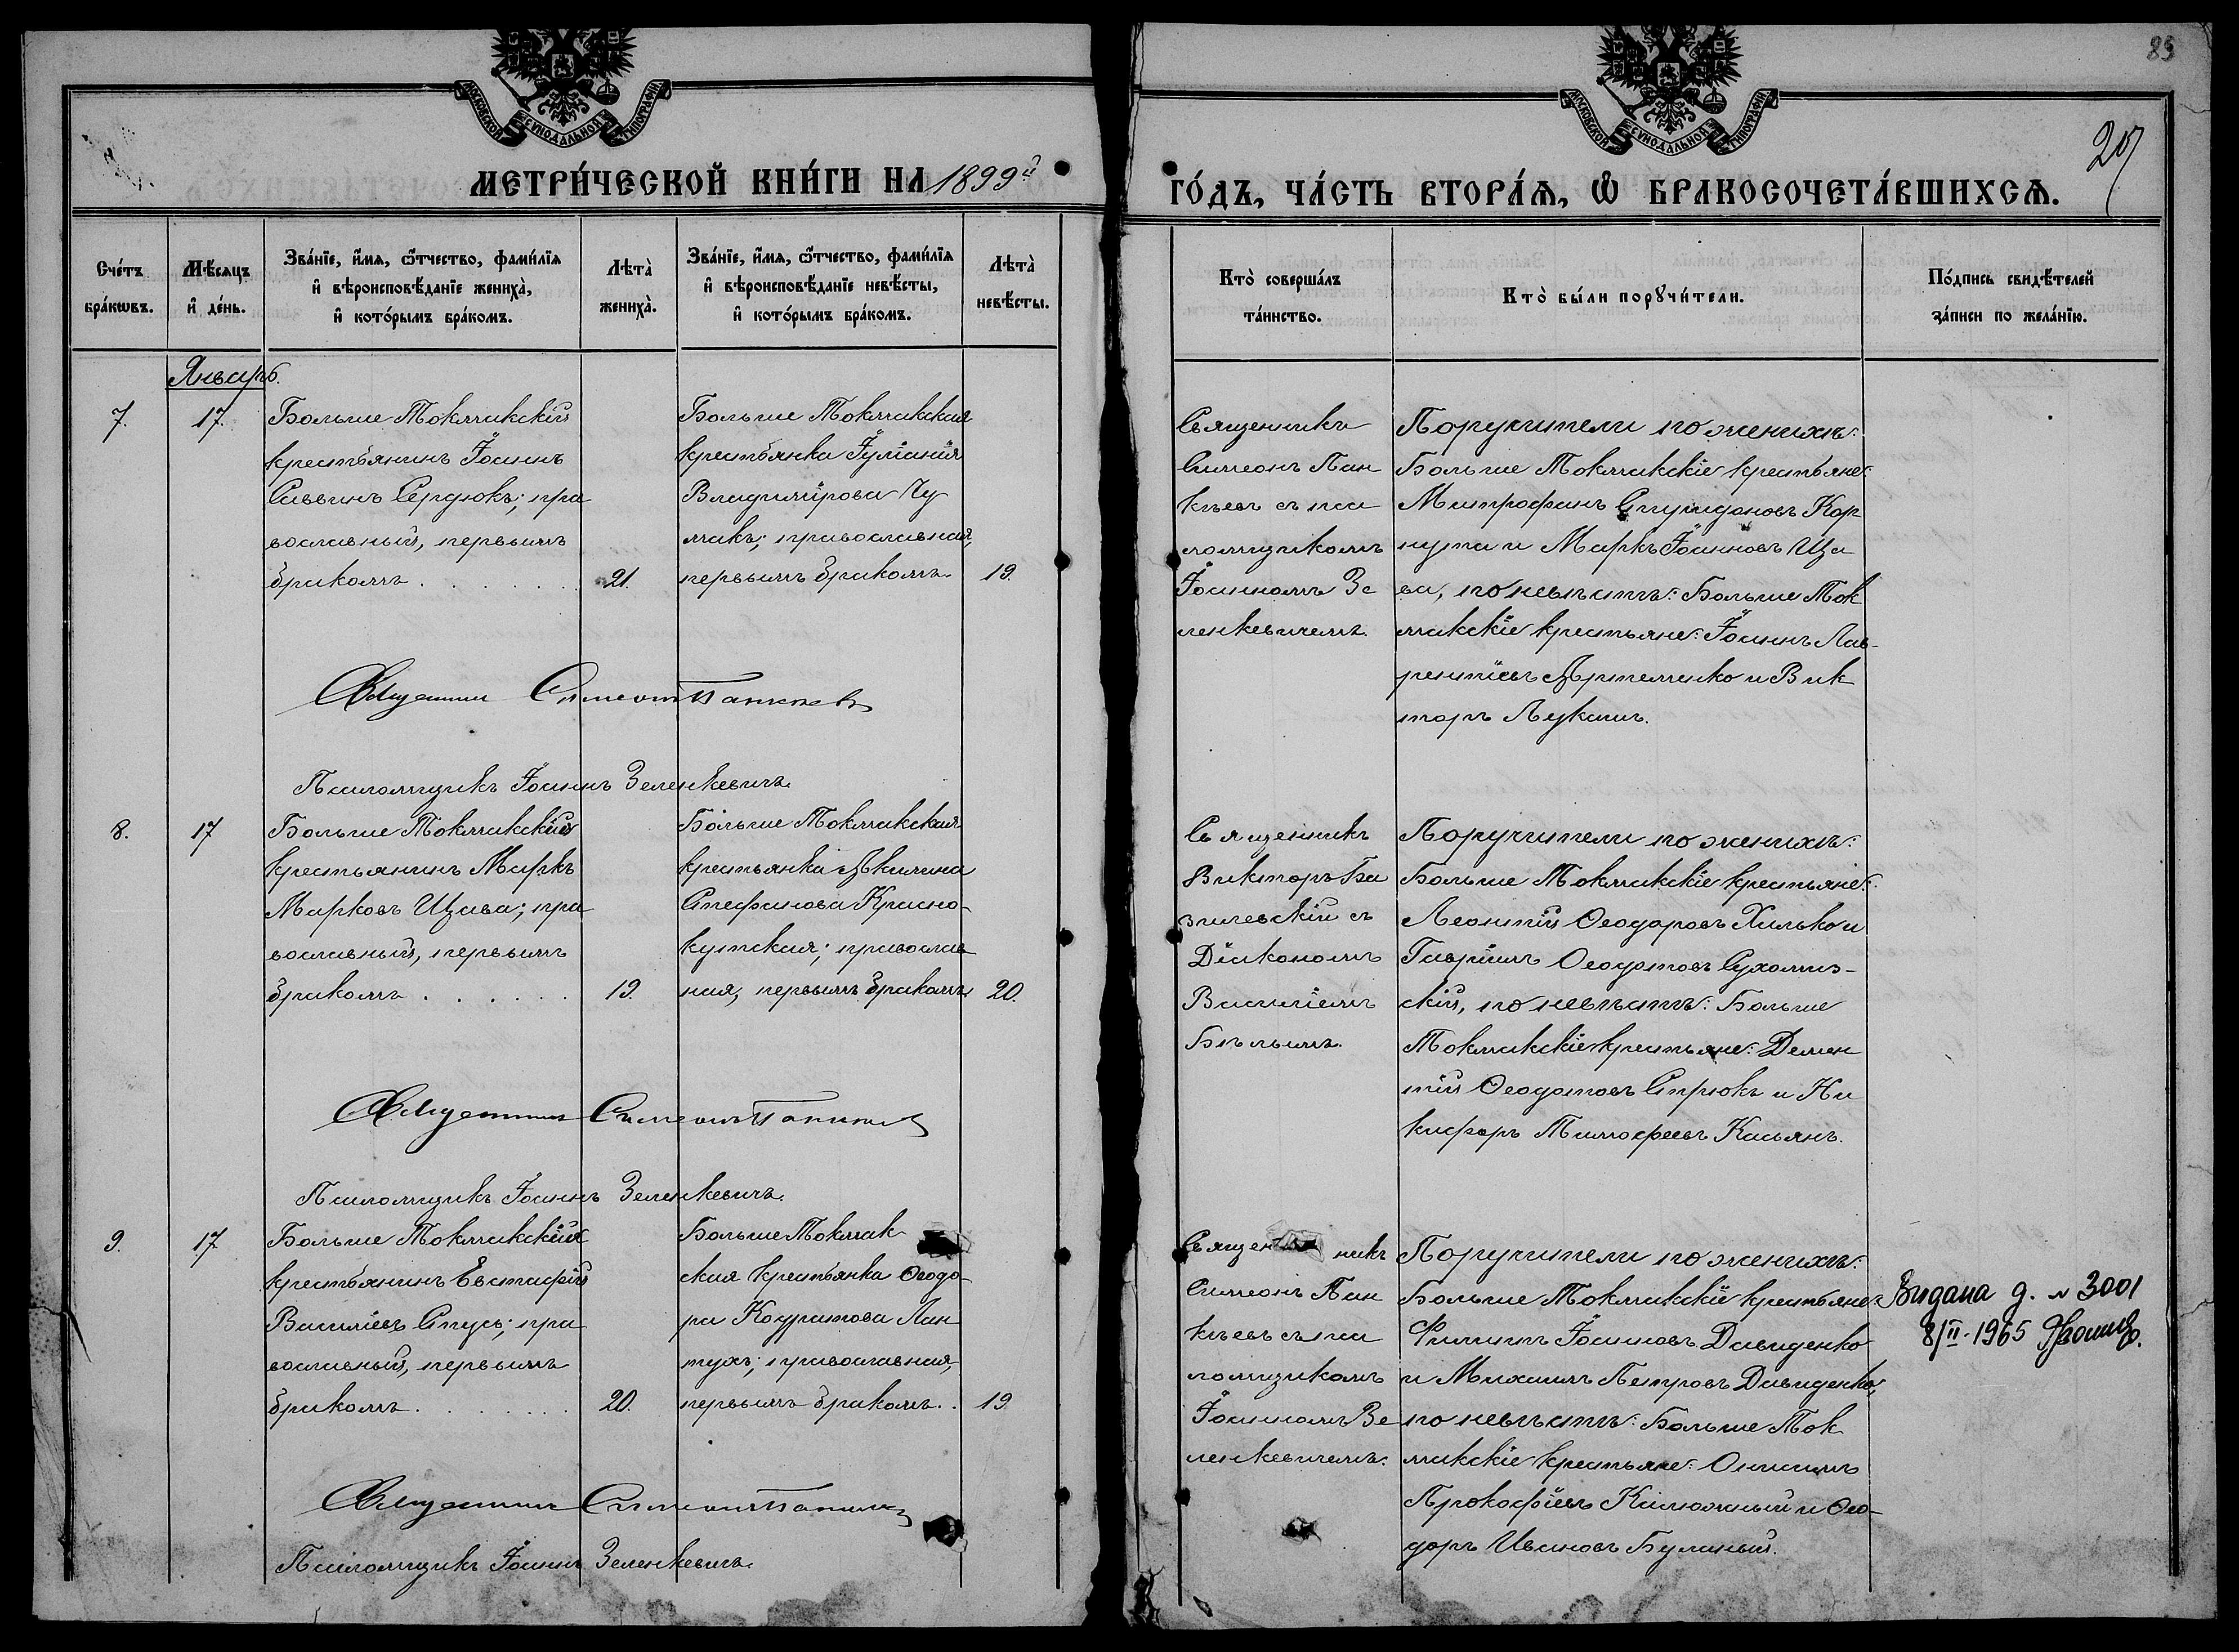 83
20
МОСКОВСКОЙ СУНОДАЛЬНОЙ ТИПОГРАФІИ
МОСКОВСКОЙ СУНОДАЛЬНОЙ ТИПОГРАФІИ
МЕТРИ́ЧЕСКОЙ КНИ́ГИ НА 1899й
ГО́ДЪ, ЧА́СТЬ ВТОРА́Я, Ѡ БРАКОСОЧЕТА́ВШИХСЯ.
Сче́тъ бра́кѡвъ.
Мѣ́сяцъ и҆ де́нь.
Зва́нїе, и҆́мя, ѻ҆́тчество, фами́лїя
и҆ вѣроисповѣ́данїе жениха̀,
и҆ кото́рымъ бра́комъ.
Лѣта̀ жениха̀.
Зва́нїе, и҆́мя, ѻ҆́тчество, фами́лїя
и҆ вѣроисповѣ́данїе невѣ́сты,
и҆ кото́рымъ бра́комъ.
Лѣта̀ невѣ́сты.
Кто̀ соверша́лъ
та́инство.
Кто̀ бы́ли порꙋчи́тели.
По́дпись свидѣ́телей
за́писи по жела́нїю.
Январь.
7.
17.
Больше Токмакскій
крестьянинъ Іоаннъ
Саввинъ Сердюкъ; пра
вославный, первымъ
бракомъ
21.
Больше Токмакская
крестьянка Іуліанія
Владимірова Чу
макъ; православная,
первымъ бракомъ.
19.
Священникъ
Симеонъ Пан
кѣевъ съ пса
ломщикомъ
Іоанномъ Зе
ленкевичемъ.
Поручители по женихѣ:
Больше Токмакскіе крестьяне:
Митрофанъ Спиридоновъ Кор
нута и Маркъ Іоанновъ Ща
ва, по невѣстѣ: Больше Ток
макскіе крестьяне: Іоаннъ Лав-
рентіевъ Артеменко и Вик
торъ Лукашъ.
Священникъ Симеонъ Панкѣевъ
Псаломщикъ Іоаннъ Зеленкевичъ.
8.
17
Больше Токмакскій
крестьянинъ Маркъ
Марковъ Щава; пра
вославный, первымъ
бракомъ
19.
Больше Токмакская
крестьянка Акилина
Стефанова Красно-
кутская; православ
ная, первымъ бракомъ
20.
Священникъ
Викторъ Ба
зилевскій съ
Діакономъ
Василіемъ
Бѣлымъ.
Поручители по женихѣ:
Больше Токмакскіе крестьяне:
Леонтій Ѳеодоровъ Хилько и
Гавріилъ Ѳеодотовъ Сухомлз-
скій, по невѣстѣ: Больше
Токмакскіе крестьяне: Демен
тій Ѳеодотовъ Стрюкъ и Ни
кифоръ Тимофеевъ Касьянъ.
Священникъ Симеонъ Панкѣевъ
Псаломщикъ Іоаннъ Зеленкевичъ.
9.
17
Больше Токмакскій
крестьянинъ Евстафій
Василіевъ Спусь; пра
вославный, первымъ
бракомъ
20.
Больше Токмак
ская крестьянка Ѳеодо-
ра Кодратова Лан
тухъ; православная,
первымъ бракомъ.
19
Священникъ
Симеонъ Пан
кѣевъ съ пса
ломщикомъ
Іоанномъ Зе
ленкевичемъ.
Поручители по женихѣ:
Больше Токмакскіе крестьяне:
Филиппъ Іоанновъ Давиденко
и Михаилъ Петровъ Давиденко,
по невѣстѣ: Больше Ток
макскіе крестьяне: Онисимъ
Прокофіевъ Калюжный и Ѳео-
доръ Ивановъ Буланый.
Видана д. № 3001
8/II-1965
Священникъ Симеонъ Панкѣевъ
Псаломщикъ Іоаннъ Зеленкевичъ.